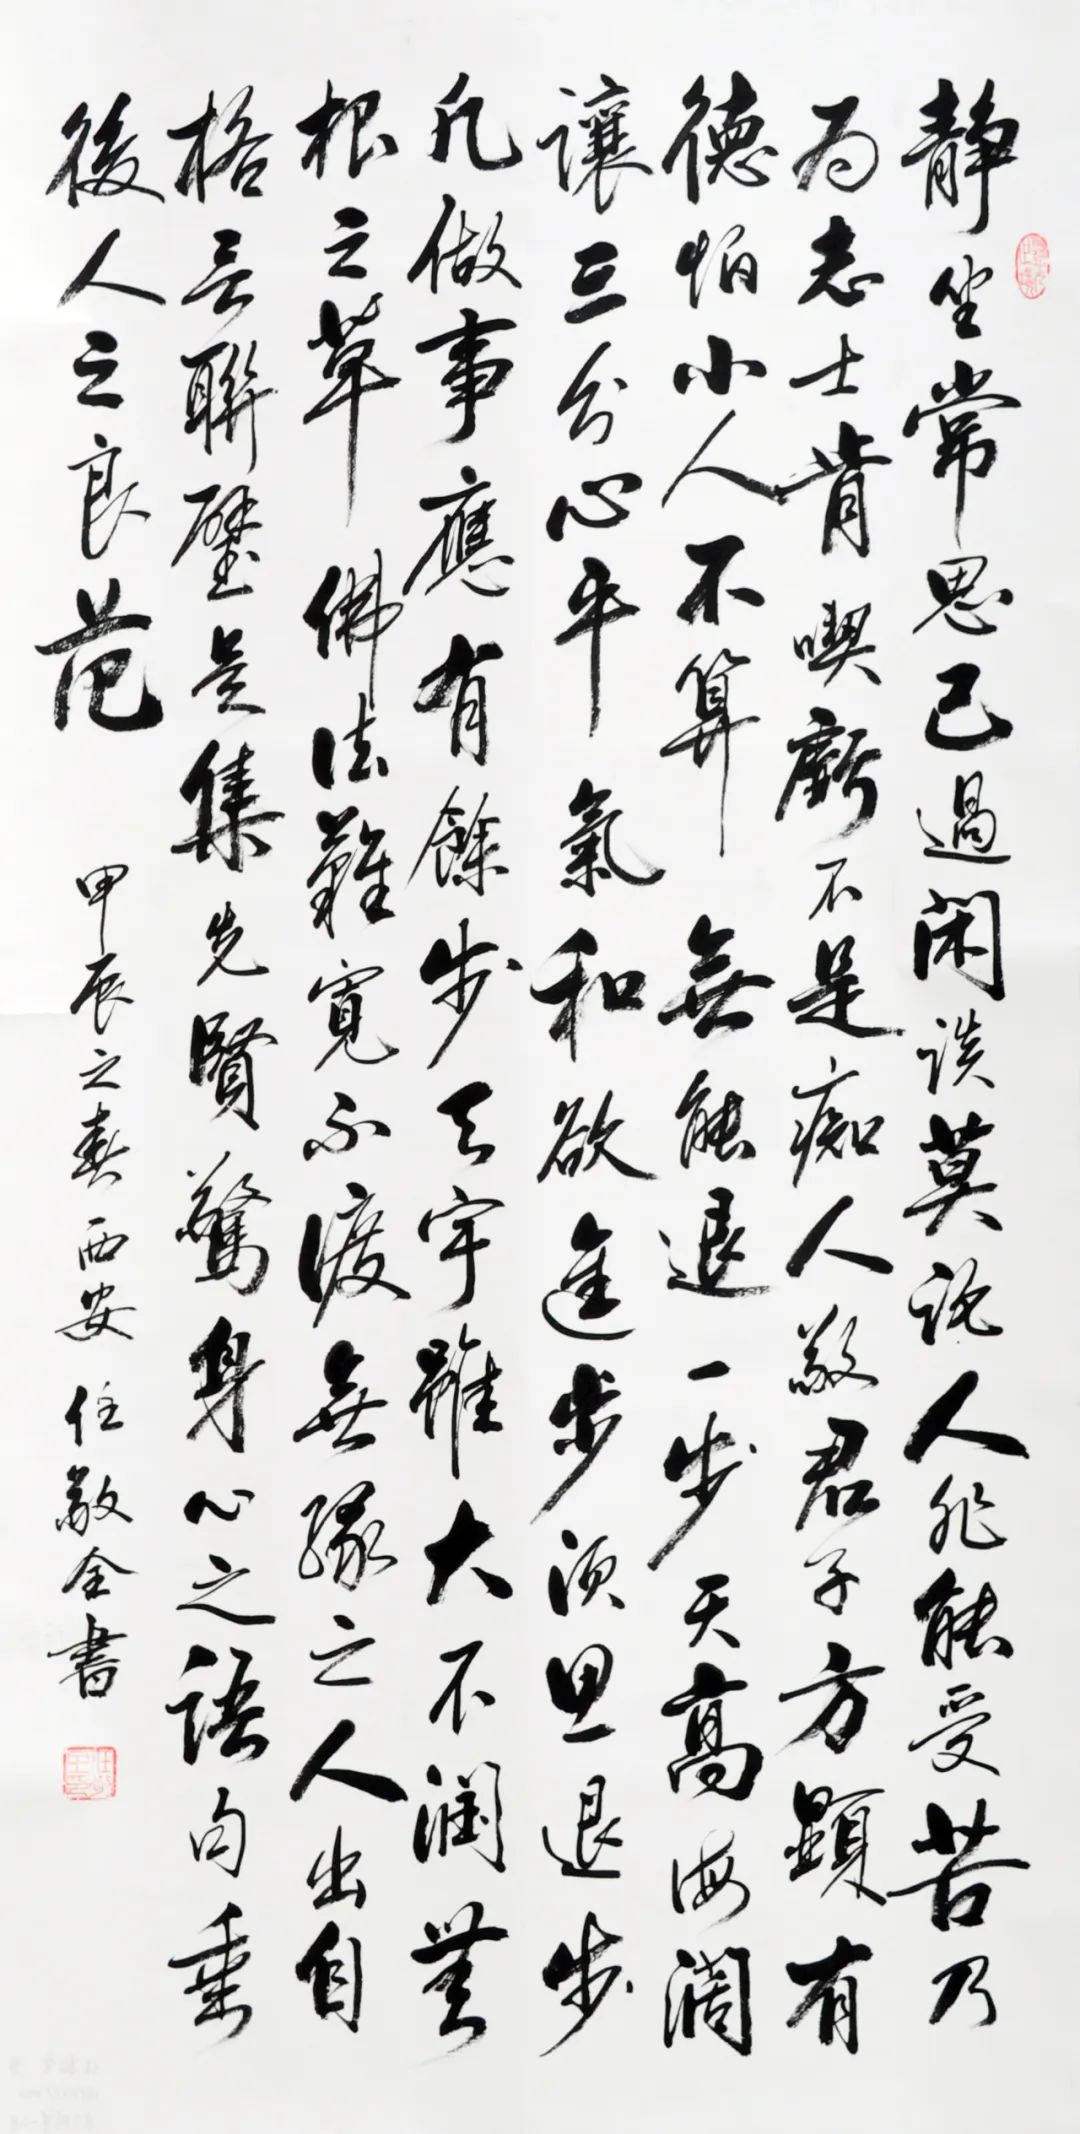 靜坐常思己過閑談莫託人非能受苦乃
为志士肯喫虧不是痴人敬君子方顯有
德怕小人不算無能退一步天高海濶
讓三分心平氣和欲進步須思退步
凡做事應有餘步天宇雖大不潤無
根之草佛法難寬不渡無緣之人出自
格言聯璧是集先賢驚身心之語句垂
後人之良范
甲辰之春西安任敬全書